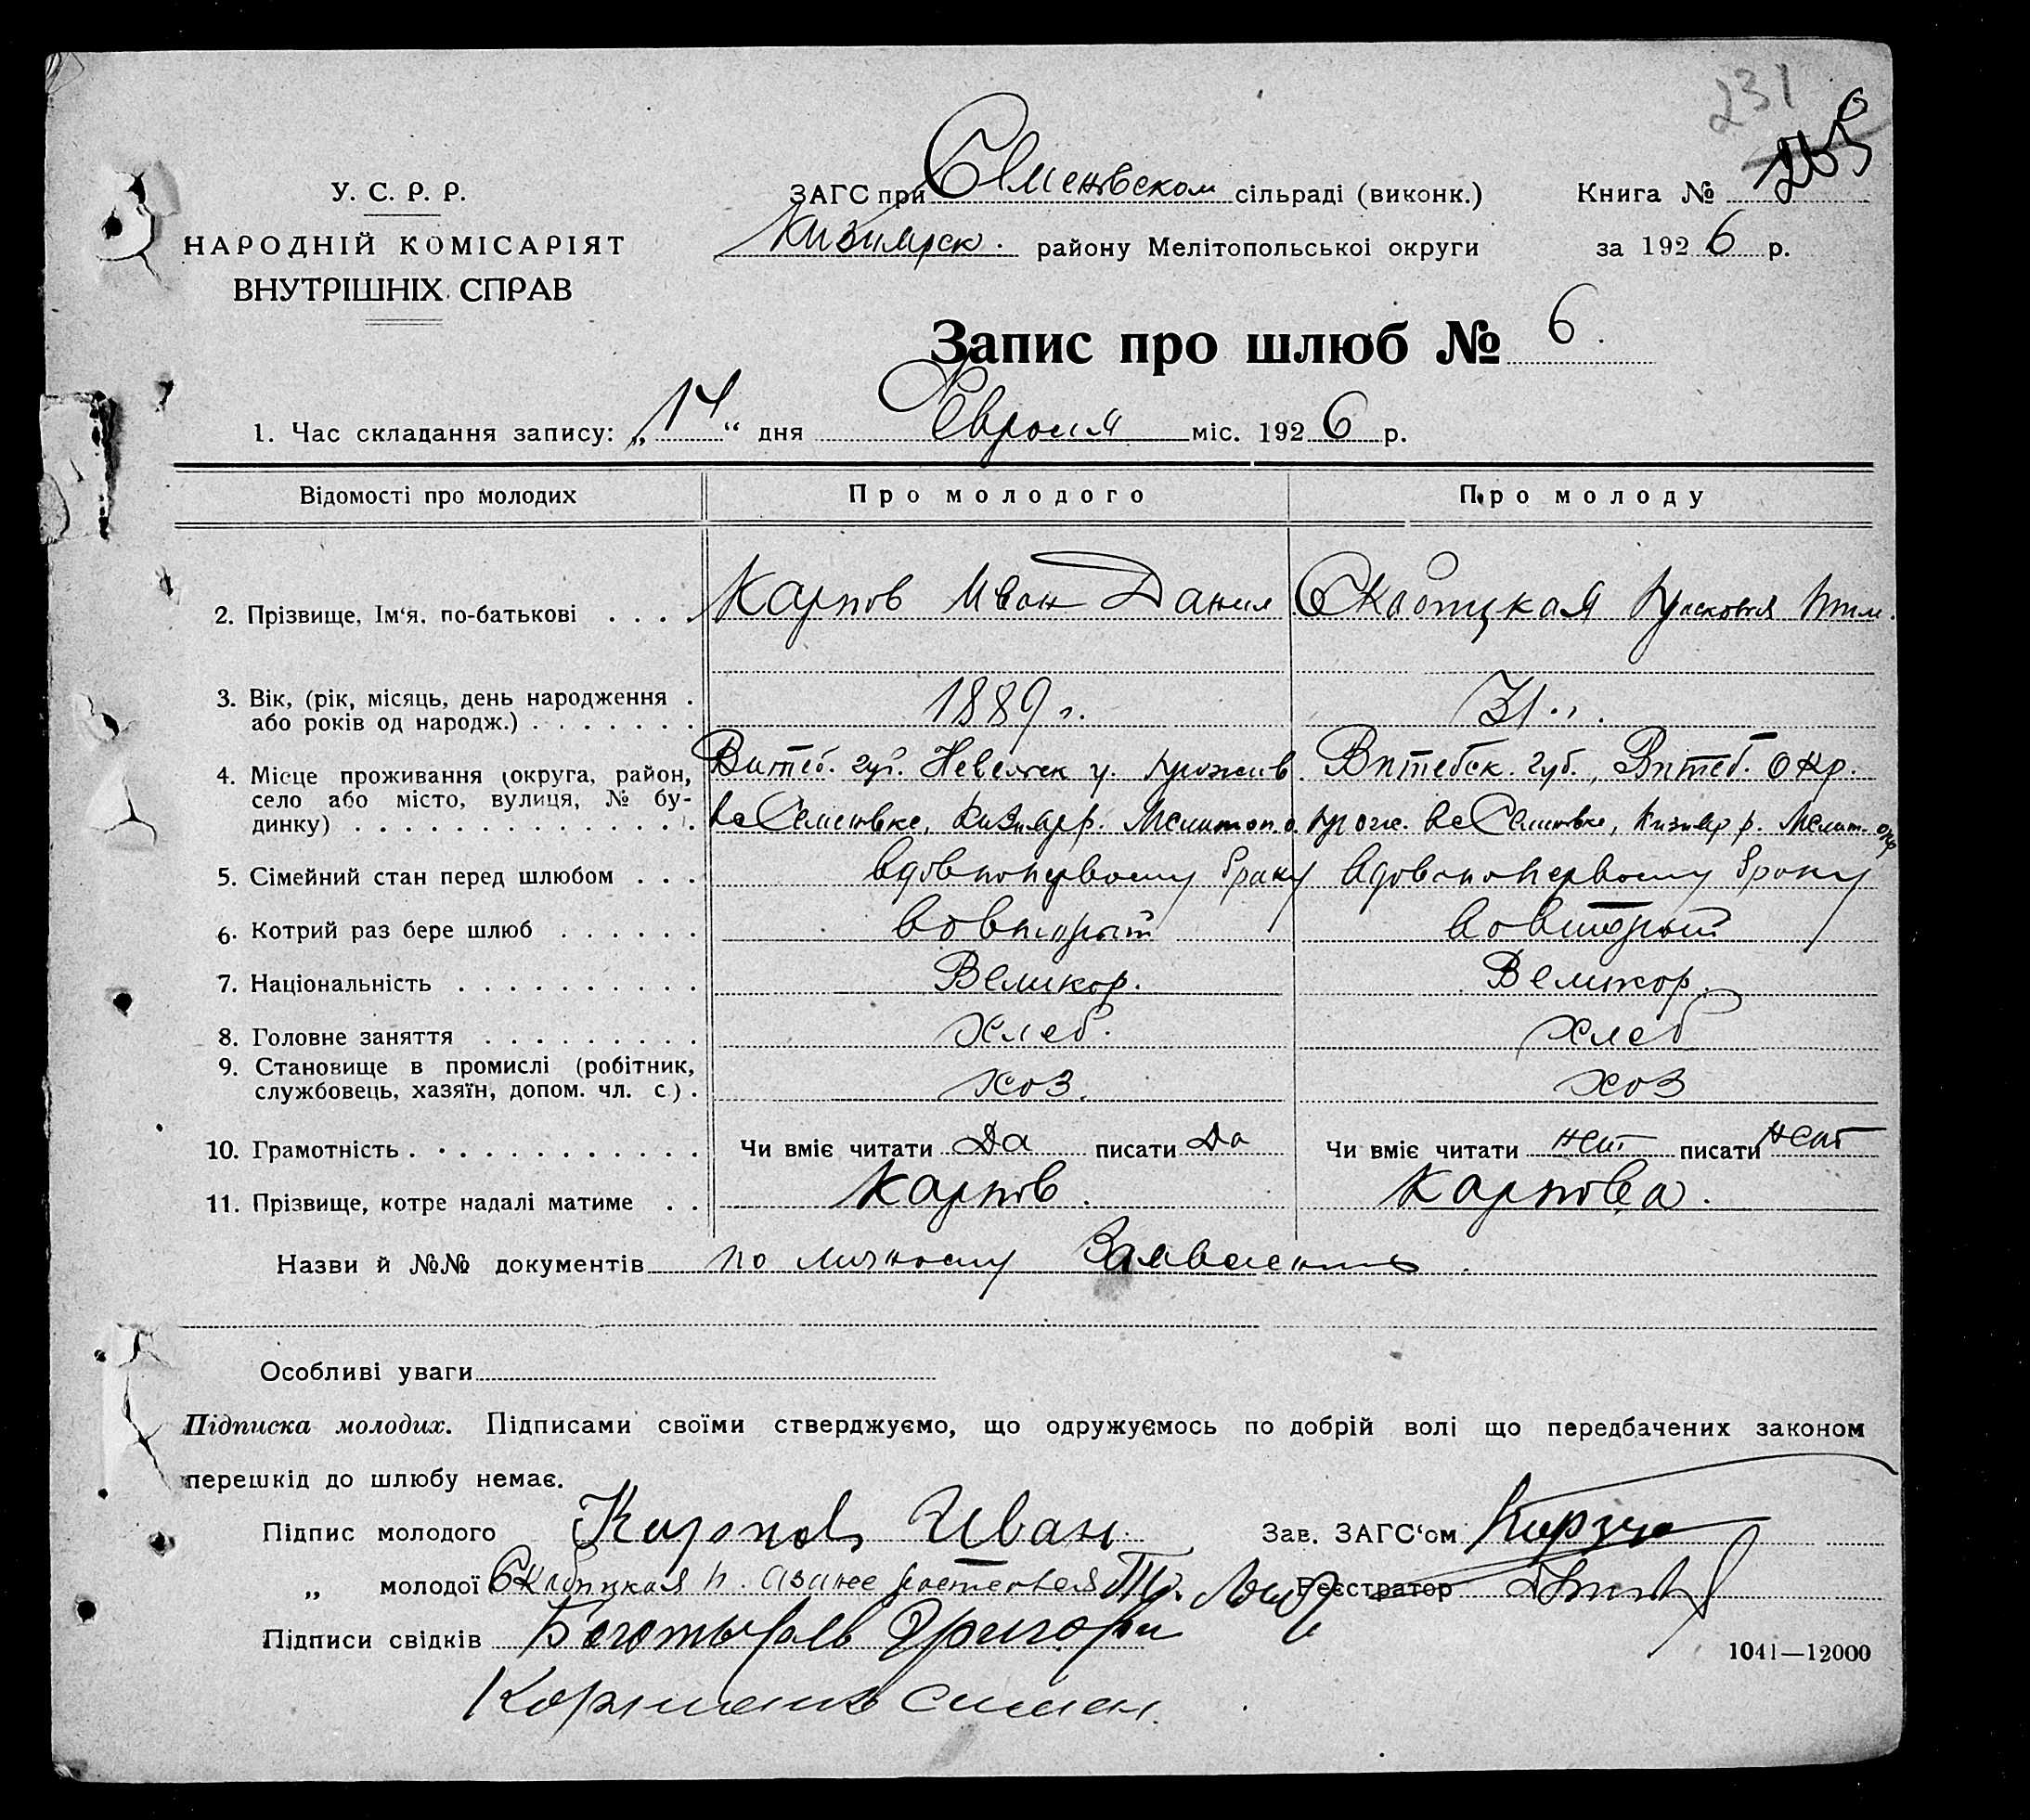 231
205
У. С. Р. Р.
НАРОДНІЙ КОМІСАРІЯТ
ВНУТРІШНІХ СПРАВ
ЗАГС при Семеновском сільраді (виконк.)
Кизиярск. району Мелітопольської округи
Книга №
за 1926 р.
Запис про шлюб № 6.
1. Час складання запису: „14“ дня Февраля міс. 1926 р.
Відомості про молодих Про молодого Про молоду
2. Прізвище, Ім'я, по-батькові . . . . Карпов Иван Данил. Скабицкая Прасковья
3. Вік, (рік, місяць, день народження . 1889 г. 31
або років од народж.) . . . . . . .
4. Місце проживання (округа, район, Витеб. губ. Невельск у. прожив. Витебск. губ., Витеб. окр.
село або місто, вулиця, № бу- в с Семеновке, Кизияр р. Мелитоп. о. прож. в с Семеновке, Кизияр р. Мелит. окр
динку) . . . . . . . . . . . . . . .
5. Сімейний стан перед шлюбом . . . вдов по первому браку вдова по первому браку
6. Котрий раз бере шлюб . . . . . . вовторый вовторый
7. Національність . . . . . . . . . . Великор. Великор.
8. Головне заняття . . . . . . . . . хлеб. хлеб
9. Становище в промислі (робітник,
службовець, хазяїн, допом. чл. с.) . хоз. хоз
10. Грамотність . . . . . . . . . . . . Чи вміє читати Да писати Да Чи вміє читати нет писати нет
11. Прізвище, котре надалі матиме . . Карпов. Карпова.
Назви й №№ документів по личному Заявлению
Особливі уваги
Підписка молодих. Підписами своїми стверджуємо, що одружуємось по добрій волі що передбачених законом
перешкід до шлюбу немає.
Підпис молодого Карпов Иван. Зав. ЗАГС‘ом
„ молодої Скабицкая П. а за нее Реєстратор
Підписи свідків Богатырев Григори
1041—12000